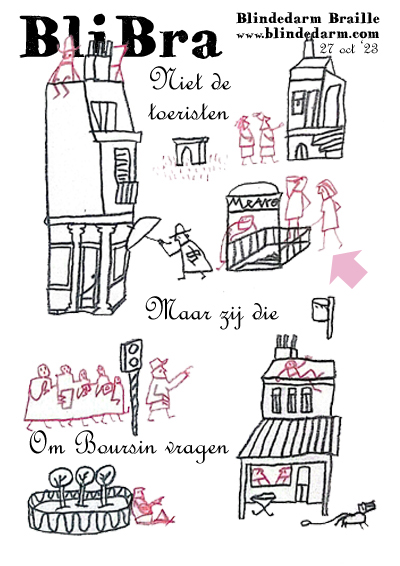 BliBra
Blindedarm Braille
www.blindedarm.com
27 oct '23
Niet de
toeristen
Maar zij die
Om Boursin vragen